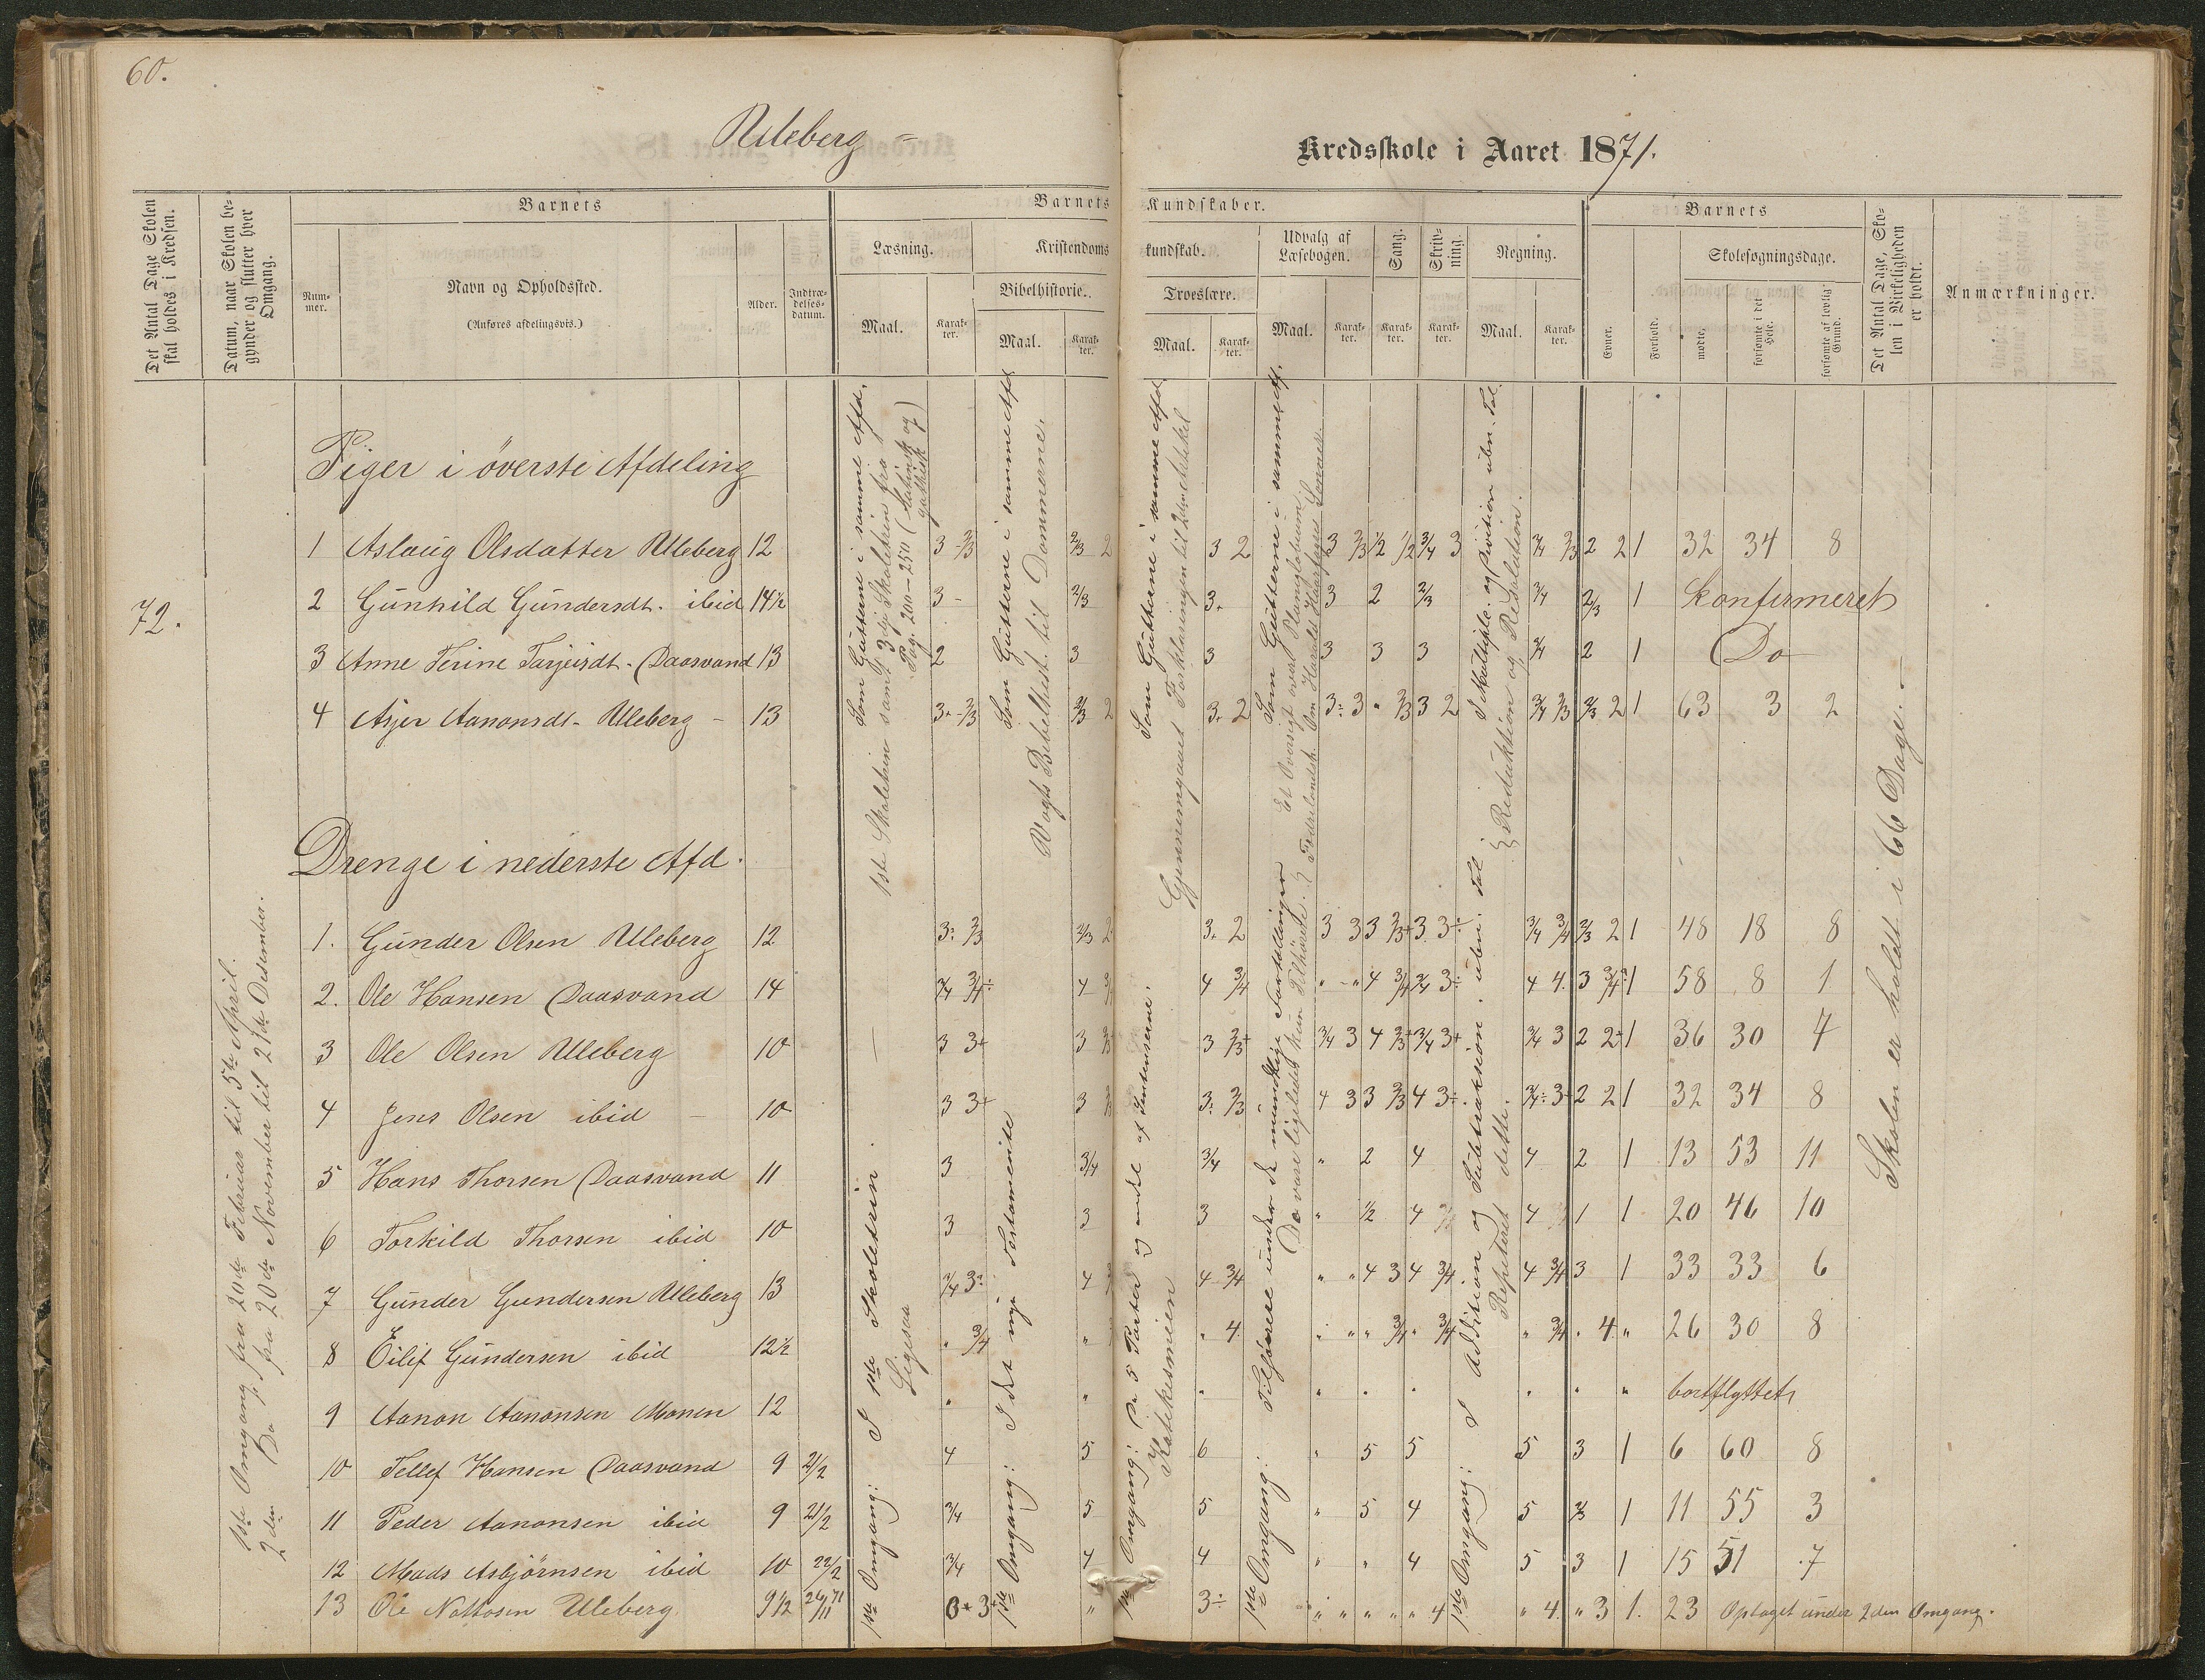 60.
Uleberg =
Kredsskole i Aaret 1871.
Det Antal Dage Skolen skal holdes i Kredsen.
Datum, naar Skolen begynder og slutter hver Omgang.
Barnets
Nummer.
Navn og Opholdssted.
(Anføres afdelingsvis.)
Alder.
Indtrædelsesdatum.
Barnets Kundskaber.
Læsning.
Maal.
Karakter.
Kristendomskundskab.
Bibelhistorie.
Maal.
Karakter.
Troeslære.
Maal.
Karakter.
Udvalg af Læsebogen.
Maal.
Karakter.
Sang.
Karakter.
Skrivning.
Karakter.
Regning.
Maal.
Karakter.
Barnets
Evner.
Forhold.
Skolesøgningsdage.
mødte.
forsømte i det Hele.
forsømte af lovlig Grund.
Det Antal Dage, Skolen i Virkeligheden er holdt.
Anmærkninger.
72.
1ste Omgang fra 20de Februar til 5te April.
2den Do fra 20de November til 21de Desember.
Piger i överste Afdeling
1 Aslaug Olsdatter Uleberg 12 3 2/3 2/3 2 3 2 3 2/3 1/2 1/2 3/4 3 3/4 2/3 2 2 1 32 34 8
2 Gunhild Gundersdt. ibid 14½ 3 2/3 3. 3 2 2/3 3/4 2/3 1 konfirmeret
3 Anne Terine Tarjeisdt. Daasvand 13 2 3 3 3 3 3 3/4 2 1 Do
4 Asjer Aanonsdt. Uleberg 13 3 2/3 2/3 2 3. 2 3 3 " 2/3 3 2 3/4 2/3 2/3 2 1 63 3 2
Drenge i nederste Afd.
1. Gunder Olsen Uleberg 12 3 2/3 2/3 2 3. 2 3 3 3 2/3 3 3 3/4 3/4 2/3 2 1 48 18 8
2. Ole Hansen Daasvand 14 3/4 3/4 4 4 3/4 " " 4 3/4 3/4 3 4 4 3 3/4 1 58 8 1
3 Ole Olsen Uleberg 10 3 3+ 3 3 2/3 3/4 3 4 2/3 3/4 3+ 3/4 3 2 2 1 36 30 4
4 Jens Olsen ibid 10 3 3+ 3 3 2/3 4 3 3 2/3 4 3 3/4 3 2 2 1 32 34 8
5 Hans Thorsen Daasvand 11 3 3/4 3/4 " 2 4 4 2 1 13 53 11
6 Torkild Thorsen ibid 10 3 3 3 " 1/2 4 4 1 1 20 46 10
7 Gunder Gundersen Uleberg 13 3/4 3 4 4 3/4 " " 4 3 4 3/4 4 3/4 3 1 33 33 6
8 Eilif Gundersen ibid 12½ " 3/4 " " 4 " " " 3/4 " 3/4 " 3/4 " 4 " 26 30 8
9 Aanon Aanonsen Monen 12 " " " " " " " " " bortflyttet
10 Tellef Hansen Daasvand 9 21/2 4 5 6 " 5 5 5 3 1 6 60 8
11 Peder Aanonsen ibid 9 21/2 3/4 5 5 " 5 4 5 1 11 55 3
12 Mads Asbjörnsen ibid 10 22/2 3/4 4 4 " " 4 5 3 1 15 51 7
13 Ole Uleberg 9½ 3 " 3÷ " " " " " 4 " 4 " 3 1. 23 Optaget under 2den Omgang.
Som Gutterne i samme Afd.
1ste Skoletrin samt 3dje Skoletrin fra
Pag. 200-250 (Latinsk og gothisk)
1ste Omgang: I 1ste Skoletrin.
Ligesaa
Som Gutterne i samme Afd
Vogts Bibelhist. til Dommerne.
1ste Omgang: I det nye Testamente
Som Gutterne i samme Afd
Gjennemgaaet Forklaringen til 2den Artikel
1ste Omgang: De 5 Parter og endel af Katekesmien
Som Gutterne i samme Afd.
Et Oversigt over Planiglobium
Fedrelandsh. Om Harald Haarfagres Sönner.
1ste Omgang: Tilhørere under de mundtlige Fortellinger
De vare ligeledes kun Tilhörere.
I Multiplik. og Division uben. Tal.
Reduktion og Resolution.
1ste Omgang: I Addition og Subtraksion. uben. Tal
Repeteret dette.
Skolen er holdt i 66 Dage.